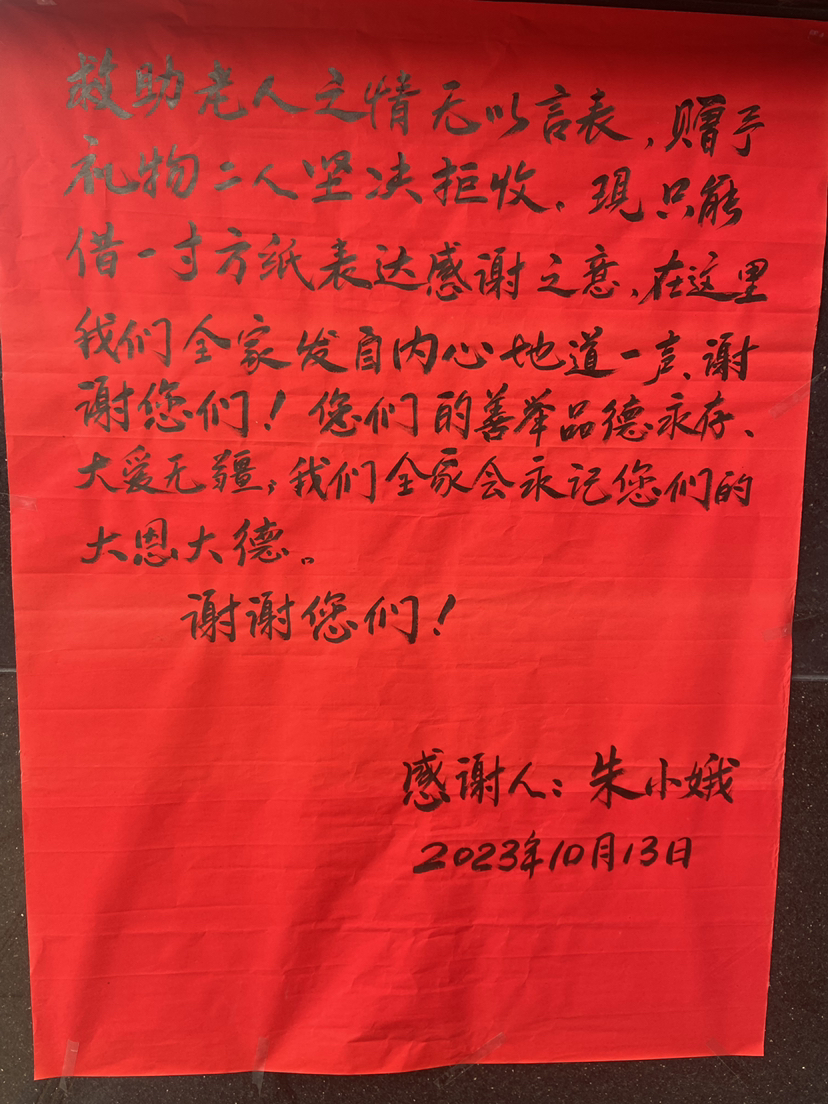 救助老人之情无以言表,赠予
礼物二人坚决拒收。现只能
借一寸方纸表达感谢之意、在这里
我们全家发自内心地道一声、谢
谢您们!您们的善举品德永存、
大爱无疆;我们全家会永记您们的
大恩大德。
谢谢您们!
感谢人:朱小娥
2023年10月13日